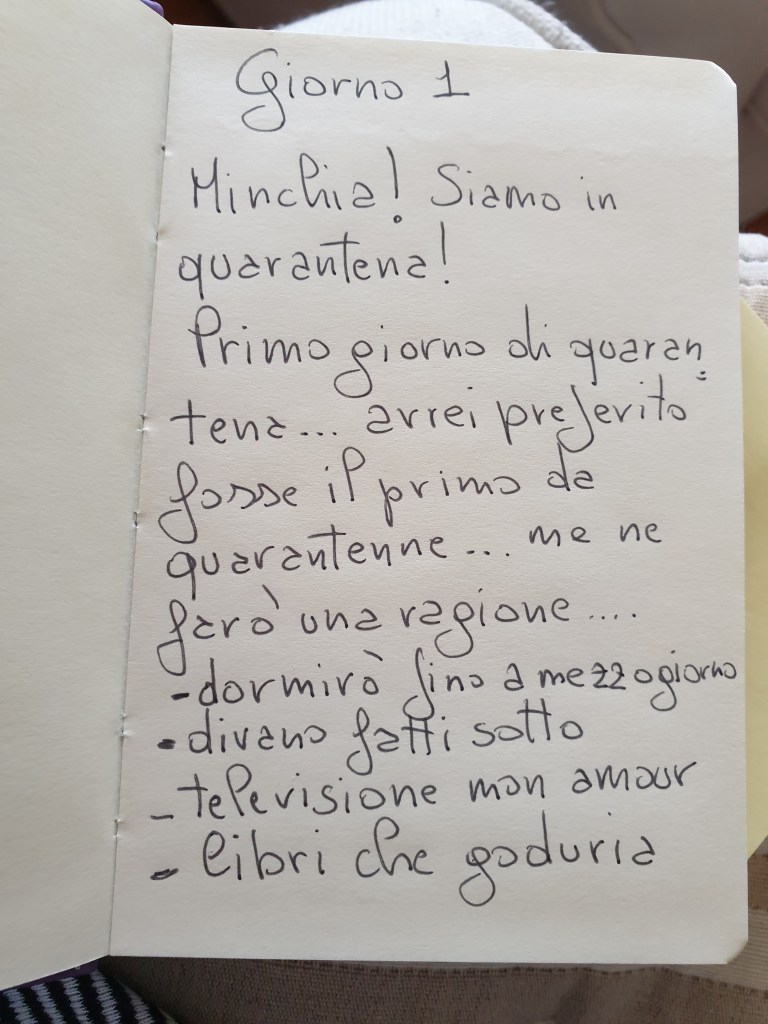 Giorno 1
Minchia! Siamo in
quarantena!
Primo giorno di quaran=
tena... avrei preferito
fosse il primo da
quarantenne... me ne
farò una ragione....
-dormirò fino a mezzogiorno
-divano fatti sotto
-televisione mon amour
- libri che goduria